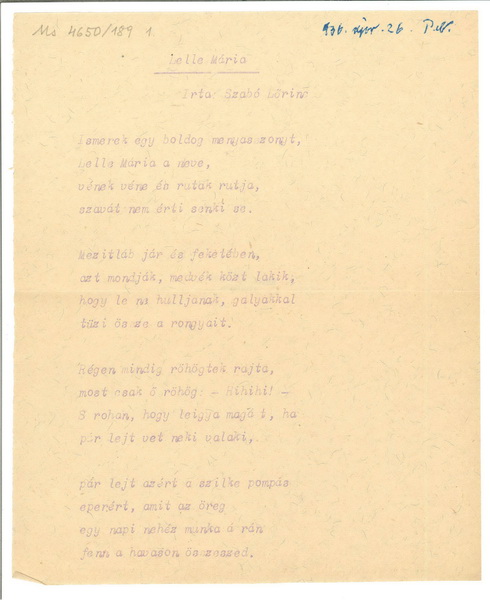 Ms 4650/189 1.
936. ápr. 26. P.N.
Lelle Mária
Irta: Szabó Lőrinc
Ismerek egy boldog menyasszonyt,
Lelle Mária a neve,
vének véne és rutak rutja,
szavát nem érti senki se.
Mezitláb jár és feketében,
azt mondják, medvék közt lakik,
hogy le ne hulljanak, galyakkal
tüzi össze a rongyait.
Régen mindig röhögtek rajta,
most csak ő röhög: - Hihihi! -
S rohan, hogy leigya magát, ha
pár lejt vet neki valaki,
pár lejt azért a szilke pompás
eperért, amit az öreg
egy napi nehéz munka árán
fenn a havason összeszed.